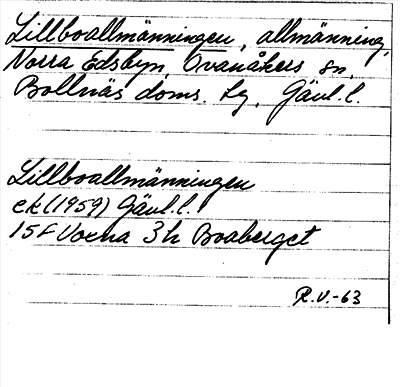 Lillboallmänningen, allmänning,
Norra Edsbyn Ovanåkers sn,
Bollnäs doms. tg, Gävl. l.
Lillboallmänningen
ek (1959) Gävl. l.
15F Voxna 3h Boaberget
R.V.-63